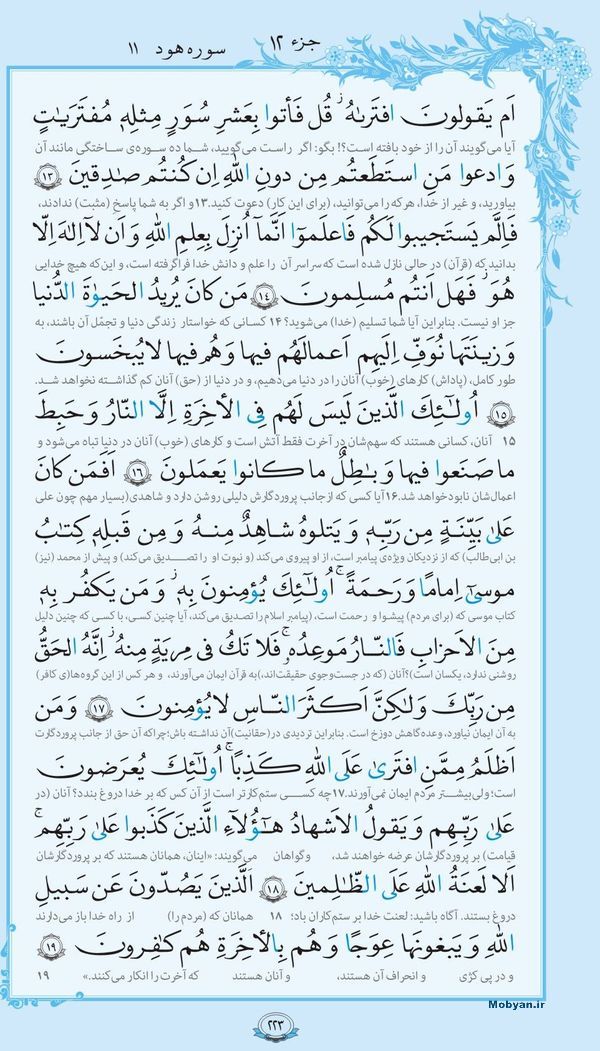 جزء ۱۲ سوره هود ۱۱
اَم يَقولونَ افتَرىٰهُ ۖ قُل فَأتوا بِعَشرِ سُوَرٍ مِثلِهِ مُفتَرَيٰتٍ
آیا می‌گویند آن را از خود بافته است؟! بگو: اگر راست می‌گویید، شما ده سوره‌ی ساختگی مانند آن
وَ ادعوا مَنِ استَطَعتُم مِن دونِ اللهِ اِن كُنتُم صٰدِقينَ ۱۳
بیاورید، و غیر از خدا، هرکه را می‌توانید، (برای این کار) دعوت کنید. ۱۳ و اگر به شما پاسخ (مثبت) ندادند،
فَاِلَّم يَستَجيبوا لَكُم فَاعلَموا اَنَّمآ اُنزِلَ بِعِلمِ اللهِ وَ اَن لآ اِلٰهَ اِلّا
بدانید که (قرآن) در حالی نازل شده است که سراسر آن را علم و دانش خدا فراگرفته است، و این‌که هیچ خدایی
هُوَ ۖ فَهَل اَنتُم مُسلِمونَ ۱۴ مَن كانَ يُريدُ الحَيوٰةَ الدُّنيا
جز او نیست. بنابراین آیا شما تسلیم (خدا) می‌شوید؟ ۱۴ کسانی که خواستار زندگی دنیا و تجمّل آن باشند، به
وَ زينَتَها نُوَفِّ اِلَيهِم اَعمالَهُم فيها وَ هُم فيها لا يُبخَسونَ
طور کامل، (پاداش) کارهای (خوب) آنان را در دنیا می‌دهیم، و در دنیا از (حق) آنان کم گذاشته نخواهد شد.
۱۵ اُولٰٓئِكَ الَّذينَ لَيسَ لَهُم فِى الأخِرَةِ اِلَّا النّارُ وَ حَبِطَ
۱۵ آنان، کسانی هستند که سهم‌شان در آخرت فقط آتش است و کارهای (خوب) آنان در دنیا تباه می‌شود و
ما صَنَعوا فيها وَ بٰطِلٌ ما كانوا يَعمَلونَ ۱۶ اَفَمَن كانَ
اعمال‌شان نابود خواهد شد. ۱۶ آیا کسی که از جانب پروردگارش دلیلی روشن دارد و شاهدی (بسیار مهم چون علی
عَلىٰ بَيِّنَةٍ مِن رَبِّهِ وَ يَتلوهُ شاهِدٌ مِنهُ وَ مِن قَبلِهِ كِتٰبُ
بن ابی‌طالب) که از نزدیکان ویژه‌ی پیامبر است، از او پیروی می‌کند (و نبوت او را تصدیق می‌کند) و پیش از محمد (نیز)
موسىٰٓ اِمامًا وَ رَحمَةً ۚ اُولٰٓئِكَ يُؤمِنونَ بِهِ ۚ وَ مَن يَكفُر بِهِ
کتاب موسی که (برای مردم) پیشوا و رحمت است، (پیامبر اسلام را تصدیق می‌کند، آیا چنین کسی، با کسی که چنین دلیل
مِنَ الاَحزابِ فَالنّارُ مَوعِدُهُ ۚ فَلا تَكُ فى مِريَةٍ مِنهُ ۚ اِنَّهُ الحَقُّ
روشنی ندارد، یکسان است؟) آنان (که در جست‌وجوی حقیقت‌اند،) به قرآن ایمان می‌آورند، و هر کس از این گروه‌ها(ی کافر)
مِن رَبِّكَ وَلٰكِنَّ اَكثَرَ النّاسِ لا يُؤمِنونَ ۱۷ وَ مَن
به آن ایمان نیاورد، وعده‌گاهش دوزخ است. بنابراین تردیدی در (حقانیت) آن نداشته باش؛ چراکه آن حق از جانب پروردگارت
اَظلَمُ مِمَّنِ افتَرىٰ عَلَى اللهِ كَذِبًا ۚ اُولٰٓئِكَ يُعرَضونَ
است؛ ولی بیشتر مردم ایمان نمی‌آورند. ۱۷ چه کسی ستم‌کارتر است از آن کس که بر خدا دروغ بندد؟ آنان (در
عَلىٰ رَبِّهِم وَ يَقولُ الاَشهادُ هٰٓؤُلآءِ الَّذينَ كَذَبوا عَلىٰ رَبِّهِم ۚ
قیامت) بر پروردگارشان عرضه خواهند شد، و گواهان می‌گویند: «اینان، همانان هستند که بر پروردگارشان
اَلا لَعنَةُ اللهِ عَلَى الظّٰلِمينَ ۱۸ الَّذينَ يَصُدّونَ عَن سَبيلِ
دروغ بستند. آگاه باشید: لعنت خدا بر ستم‌کاران باد؛ ۱۸ همانان که (مردم را) از راه خدا باز می‌دارند
اللهِ وَ يَبغونَها عِوَجًا وَ هُم بِالأخِرَةِ هُم كٰفِرونَ ۱۹
و در پی کژی و انحراف آن هستند، و آنان هستند که آخرت را انکار می‌کنند.» ۱۹
۲۲۳
Mobyan.ir